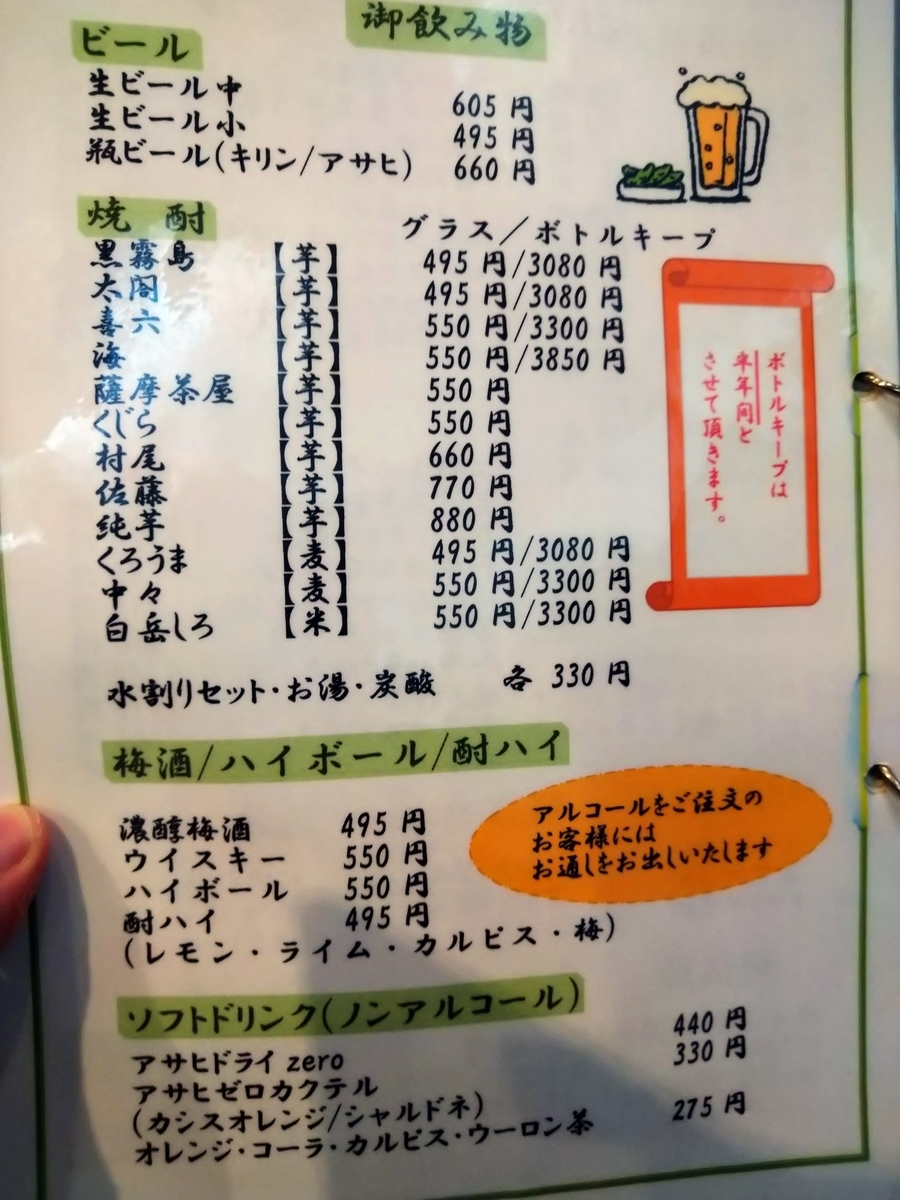 御飲み物
ビール
生ビール中 605 円
生ビール小 495 円
瓶ビール(キリン/アサヒ) 660 円
焼 酎 グラス/ボトルキープ
黒霧島 【芋】 495 円/3080 円
太閤 【芋】 495 円/3080 円
喜六 【芋】 550 円/3300 円
海 【芋】 550 円/3850 円
薩摩茶屋 【芋】 550 円
くじら 【芋】 550 円
村尾 【芋】 660 円
佐藤 【芋】 770 円
純芋 【芋】 880 円
くろうま 【麦】 495 円/3080 円
中々 【麦】 550 円/3300 円
白岳しろ 【米】 550 円/3300 円
ボトルキープは
半年間と
させて頂きます。
水割りセット・お湯・炭酸 各 330 円
梅酒/ハイボール/酎ハイ
濃醇梅酒 495 円
ウイスキー 550 円
ハイボール 550 円
酎ハイ 495 円
(レモン・ライム・カルピス・梅)
アルコールをご注文の
お客様には
お通しをお出しいたします
ソフトドリンク(ノンアルコール)
アサヒドライ zero 440 円
アサヒゼロカクテル 330 円
(カシスオレンジ/シャルドネ)
オレンジ・コーラ・カルピス・ウーロン茶 275 円